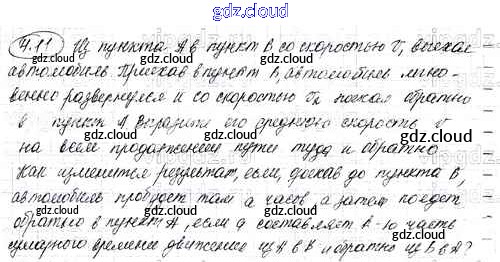 gdz.cloud
4.11 Из пункта А в пункт В со скоростью v₁ выехал
автомобиль. Приехав в пункт В, автомобиль мгно-
венно развернулся и со скоростью v₂ поехал обратно
в пункт А. Выразите его среднюю скорость v
на всем продолжении пути туда и обратно.
Как изменится результат, если, доехав до пункта В,
автомобиль пробудет там a часов, а затем поедет
обратно в пункт А, если a составляет k-ю часть
суммарного времени движения из А в В и обратно из В в А?
gdz.cloud